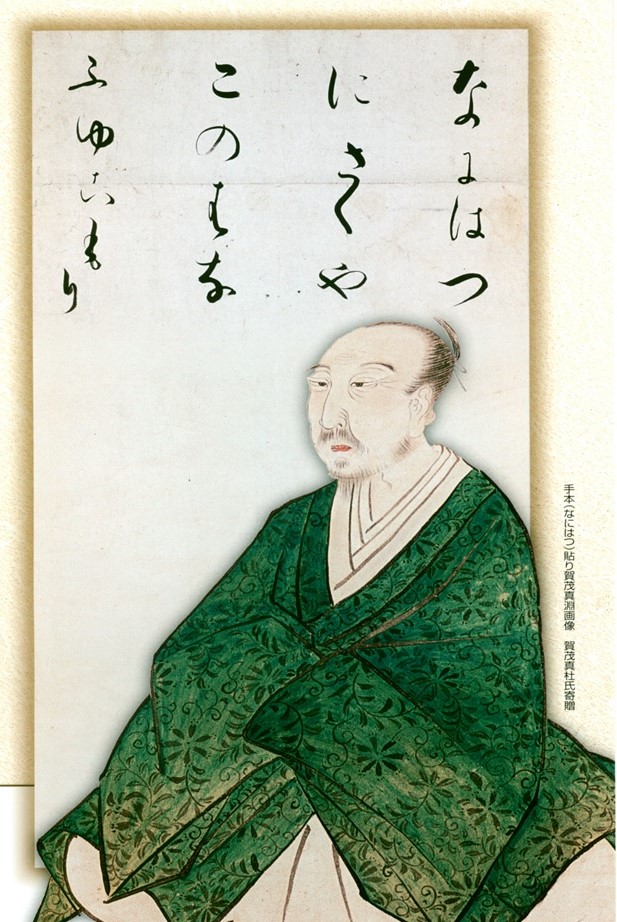 なにはつ
にさくや
このはな
ふゆこもり
手本(なにはつ)貼り賀茂真淵画像　賀茂真杜氏寄贈